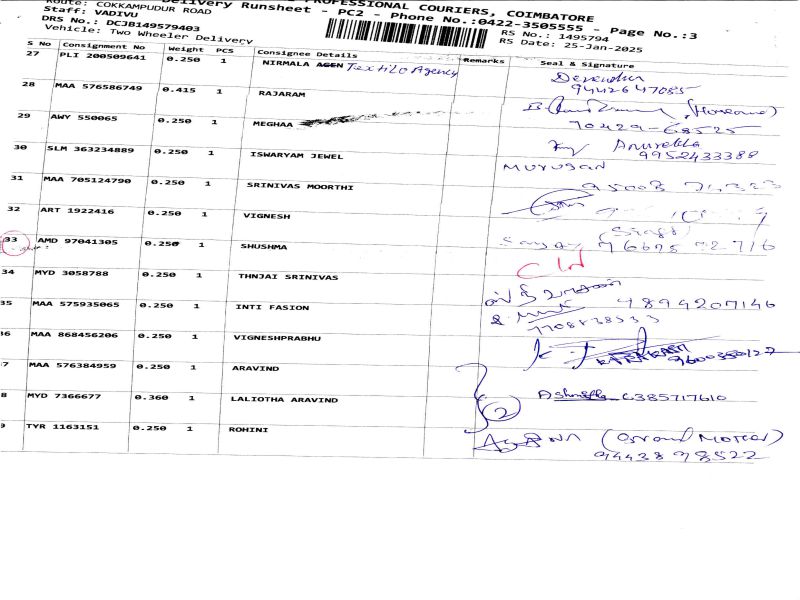 PROFESSIONAL COURIERS, COIMBATORE
Delivery Runsheet - PC2 - Phone No.:0422-3505555 - Page No.:3
Route: COKKAMPUDUR ROAD
Staff: VADIVU
DRS No.: DCJB149579403
Vehicle: Two Wheeler Delivery
RS No.: 1495794
RS Date: 25-Jan-2025
S No Consignment No Weight PCS Consignee Details Remarks Seal & Signature
27 PLI 200509641 0.250 1 NIRMALA AGEN Textile Agency Devendra
9442647085
28 MAA 576586749 0.415 1 RAJARAM
29 AWY 550065 0.250 1 MEGHAA 70429-68525
30 SLM 363234889 0.250 1 ISWARYAM JEWEL Anurekha
9952433388
31 MAA 705124790 0.250 1 SRINIVAS MOORTHI MURUGAN
32 ART 1922416 0.250 1 VIGNESH
33 AMD 97041305 0.250 1 SHUSHMA
34 MYD 3058788 0.250 1 THNJAI SRINIVAS
35 MAA 575935065 0.250 1 INTI FASION 9894207146
7708838533
36 MAA 868456206 0.250 1 VIGNESHPRABHU 9600350127
7 MAA 576384959 0.250 1 ARAVIND
8 MYD 7366677 0.360 1 LALIOTHA ARAVIND 2 6385717610
9 TYR 1163151 0.250 1 ROHINI
9443898522